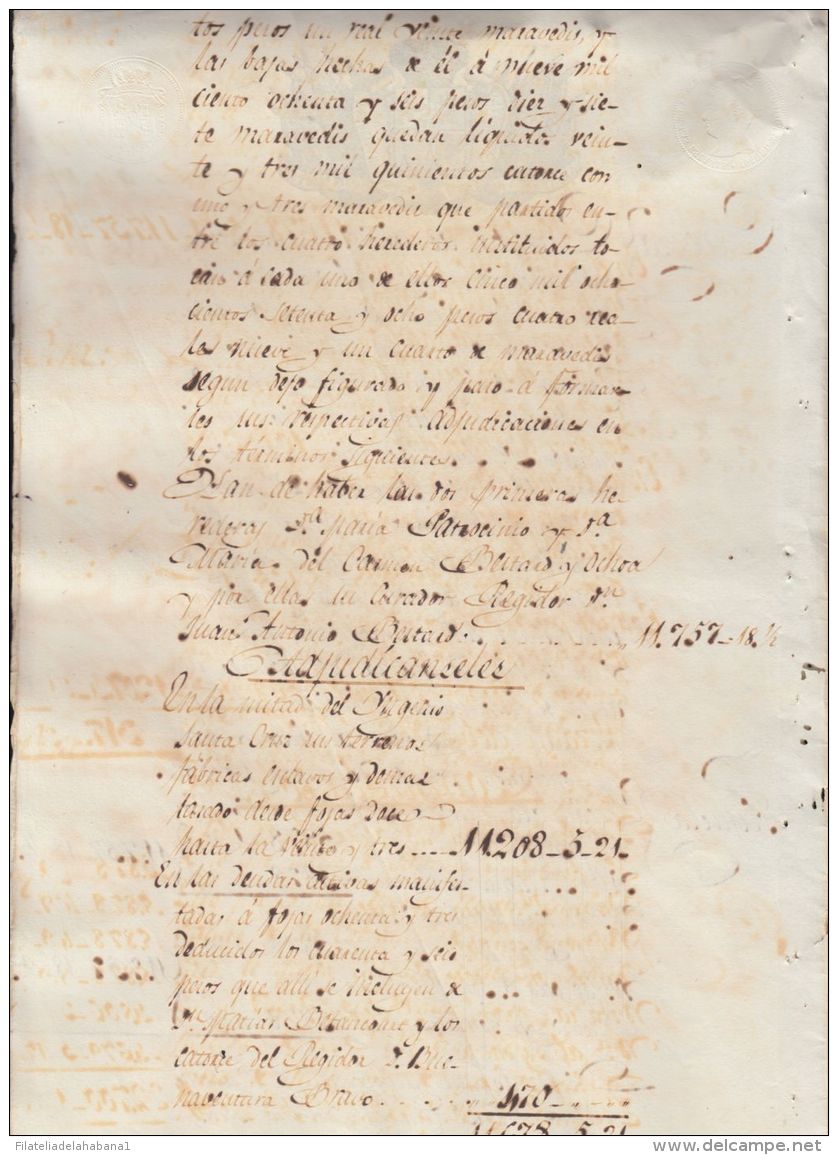 tos pesos un real veinte maravedis, y
las bajas hechas de él á nueve mil
ciento ochenta y seis pesos diez y sie-
te maravedis quedan líquidos vein-
te y tres mil quinientos catorce con
uno y tres maravedis que partidos en-
tre los cuatro herederos instituidos to-
can á cada uno de ellos cinco mil ocho-
cientos setenta y ocho pesos cuatro rea-
les nueve y un cuarto de maravedis
segun dejo figurado y paso á formar-
les sus respectivas adjudicaciones en
los términos siguientes.
Han de haber las dos primeras he-
rederas Dª Maria Patrocinio y Dª
Maria del Carmen Bertard y Ochoa
y por ellas su Curador Regidor Dn
Juan Antonio Bertard 11.757-18.½
Adjudicanseles
En la mitad del Yngenio
Santa Cruz sus terrenos
fábricas esclavos y demas
tasado desde fojas doce
hasta la veinte y tres 11208-5-21-
En las deudas activas manifes-
tadas á fojas ochenta y tres
deducidos los cuarenta y seis
pesos que allí se incluyen de
Dn Matias Betancourt y los
catorce del Regidor D. Bue-
naventura Bravo 470
11678-5-21
Filateliadelahabana1
www.delcampe.net